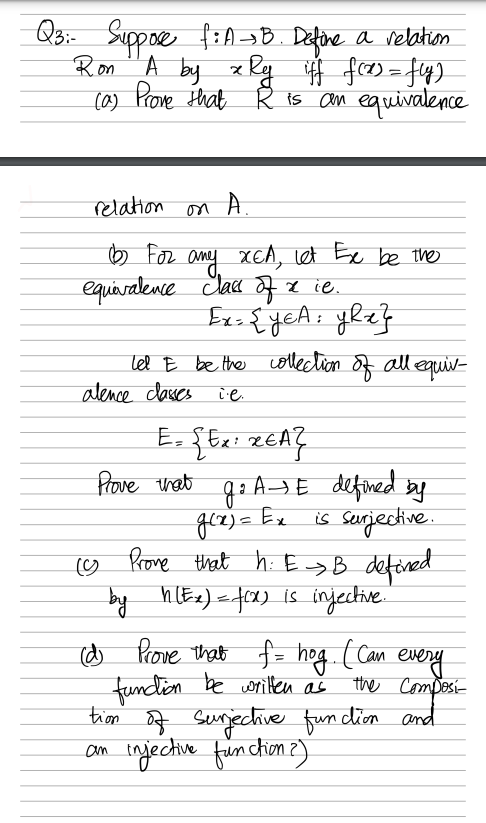 Q3:- Suppose f: A → B. Define a relation
R on A by x R y iff f(x) = f(y)
(a) Prove that R is an equivalence
relation on A.
(b) For any x∈A, let Ex be the
equivalence class of x ie.
Ex = {y∈A : yRx}
Let E be the collection of all equiv-
alence classes i.e.
E = {Ex : x∈A}
Prove that g: A → E defined by
g(x) = Ex is surjective.
(c) Prove that h: E → B defined
by h(Ex) = f(x) is injective.
(d) Prove that f = hog. (Can every
function be written as the Composi-
tion of surjective function and
an injective function?)